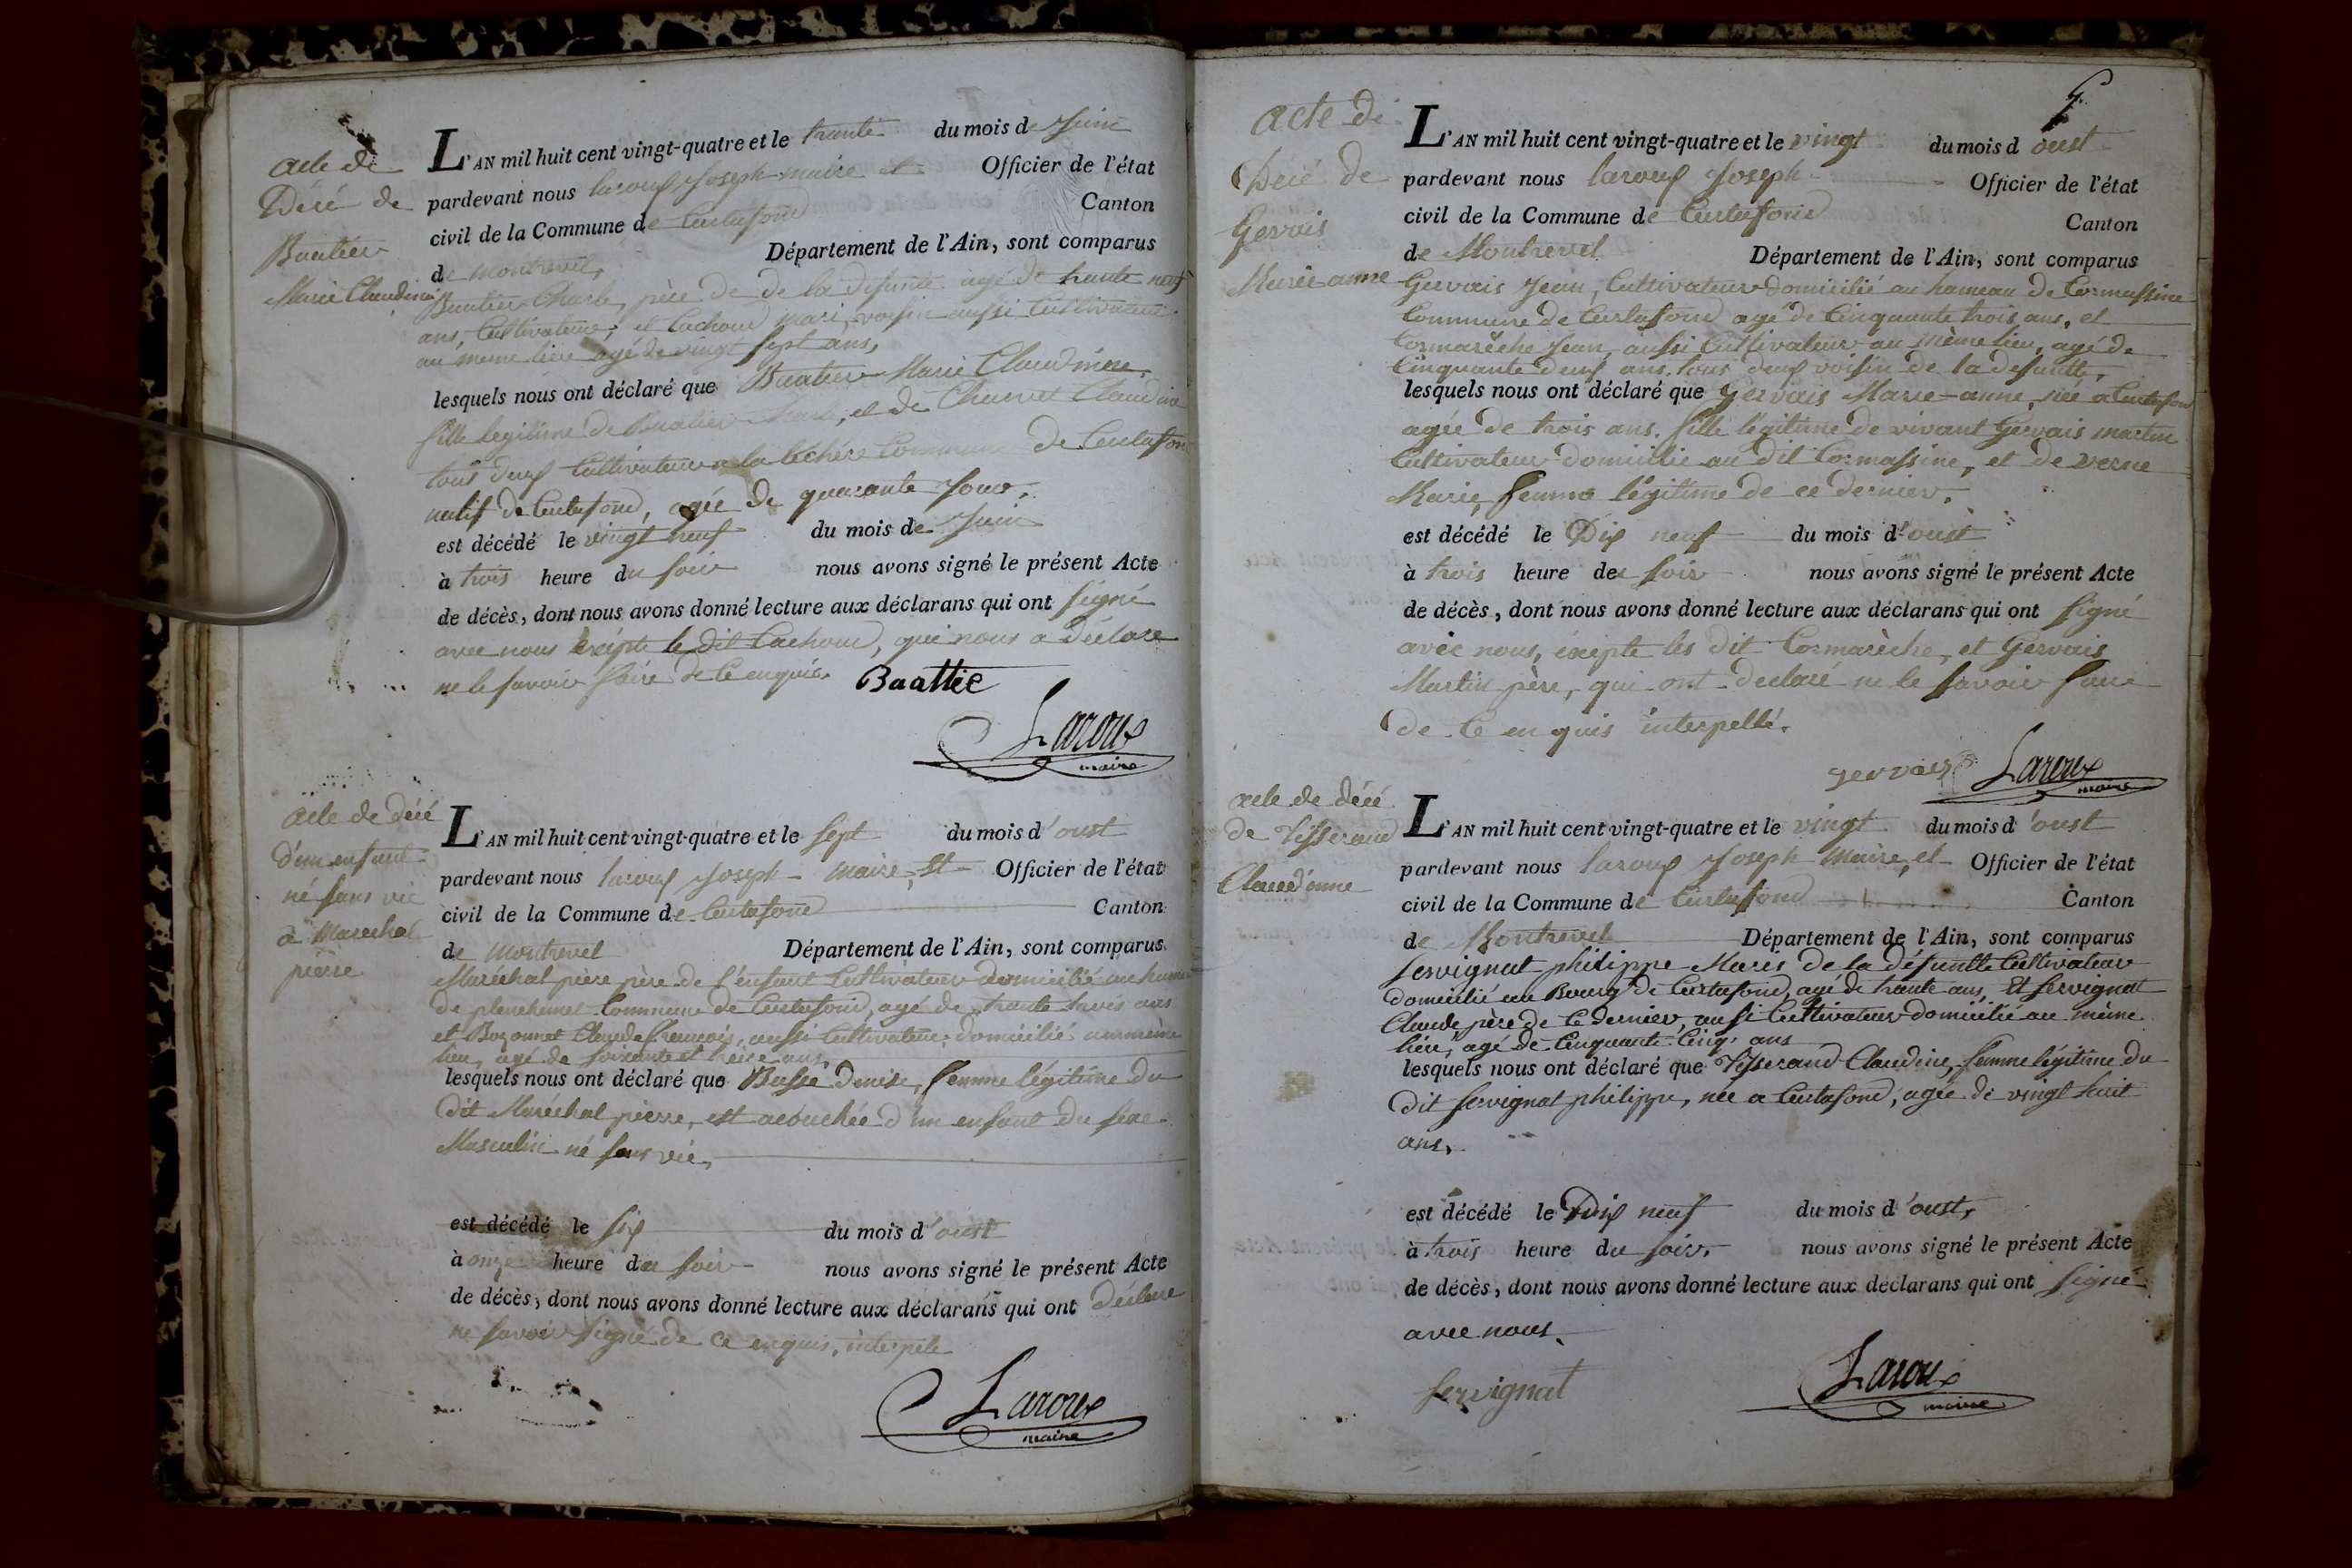 acte de
Décé de
Buatier
Marie Claudine
L'AN mil huit cent vingt-quatre et le trante du mois de Juin
pardevant nous laroux Joseph maire et Officier de l'état
civil de la Commune de Curtafond Canton
de montrevel, Département de l'Ain, sont comparus
Buatier Charle, père de de la defunte agé de trante neuf
ans, Cultivateur, et Cachoud mari, voisin aussi Cultivateur
au meme lieu agé de vingt sept ans,
lesquels nous ont déclaré que Buatier Marie Claudinne,
fille legitime de Buatier Charle, et de Charvet Claudine
tous deux Cultivateur a la lechére Commune de Curtafond
natif de Curtafond, agée de quarante Jour,
est décédé le vingt neuf du mois de Juin
à trois heure du soir nous avons signé le présent Acte
de décès, dont nous avons donné lecture aux déclarans qui ont signé
avec nous excépte le dit Cachoud, qui nous a déclare
ne le savoir faire de Ce enquis. Buattie
Laroux
maire
acte de décé
d'un enfant
né sans vie
a Marechal
pierre
L'AN mil huit cent vingt-quatre et le sept du mois d'oust
pardevant nous laroux Joseph maire, Et Officier de l'état
civil de la Commune de Curtafond Canton
de montrevel Département de l'Ain, sont comparus
Maréchal piere père de l'enfant Cultivateur domicilié au hameau
de Commune de Curtafond, agé de trante trois ans
et Bozonnet Claude françois, aussi Cultivateur domicilié au même
lieu, agé de soixante et treize ans,
lesquels nous ont déclaré que Busse Denise, femme légitime du
dit Maréchal pierre, est acouchée d'un enfant du sexe
Masculin né sans vie,
est décédé le six du mois d'oust
à onze heure du soir nous avons signé le présent Acte
de décès, dont nous avons donné lecture aux déclarans qui ont déclare
ne savoir signé de Ce enquis, interpele
Laroux
maire
5.
acte de
Décé de
Gervais
Marie anne
L'AN mil huit cent vingt-quatre et le vingt du mois d oust
pardevant nous laroux Joseph Officier de l'état
civil de la Commune de Curtafond Canton
de Montrevel Département de l'Ain, sont comparus
Gervais Jean, Cultivateur domicilié au hameau de Cormassine
Commune de Curtafond agé de Cinquante trois ans, et
Cormarèche Jean, aussi Cultivateur au même lieu, agé de
Cinquante deux ans, tous deux voisin de la defuntte,
lesquels nous ont déclaré que gervais Marie-anne, née a Curtafon
agée de trois ans, fille légitime de vivant Gervais martin
Cultivateur domicilie au dit Cormassine, et de verne
Marie, femme légitime de ce dernier,
est décédé le Dix neuf du mois d'oust
à trois heure de soir nous avons signé le présent Acte
de décès, dont nous avons donné lecture aux déclarans qui ont signé
avec nous, éxcepte les dit Cormarèche, et Gervais
Martin père, qui ont déclaré ne le savoir faire
de Ce en quis interpellé.
gervais Laroux
maire
acte de décé
de Tisserand
Claudinne
L'AN mil huit cent vingt-quatre et le vingt du mois d'oust
pardevant nous laroux Joseph Maire, et Officier de l'état
civil de la Commune de Curtafond Canton
de Montrevel Département de l'Ain, sont comparus
servignat philippe Maris de la défuntte Cultivateur
domicilié au Bourg de Curtafond, agé de trante ans, Et servignat
Claude père de Ce dernier, aussi Cultivateur domicilié au même
lieu, agé de Cinquante Cinq, ans
lesquels nous ont déclaré que Tisserand Claudine, femme légitime du
dit servignat philippe, née a Curtafond, agée de vingt huit
ans,
est décédé le Dix neuf du mois d'oust,
à trois heure du soir, nous avons signé le présent Acte
de décès, dont nous avons donné lecture aux déclarans qui ont signé
avec nous,
servignat
Laroux
maire